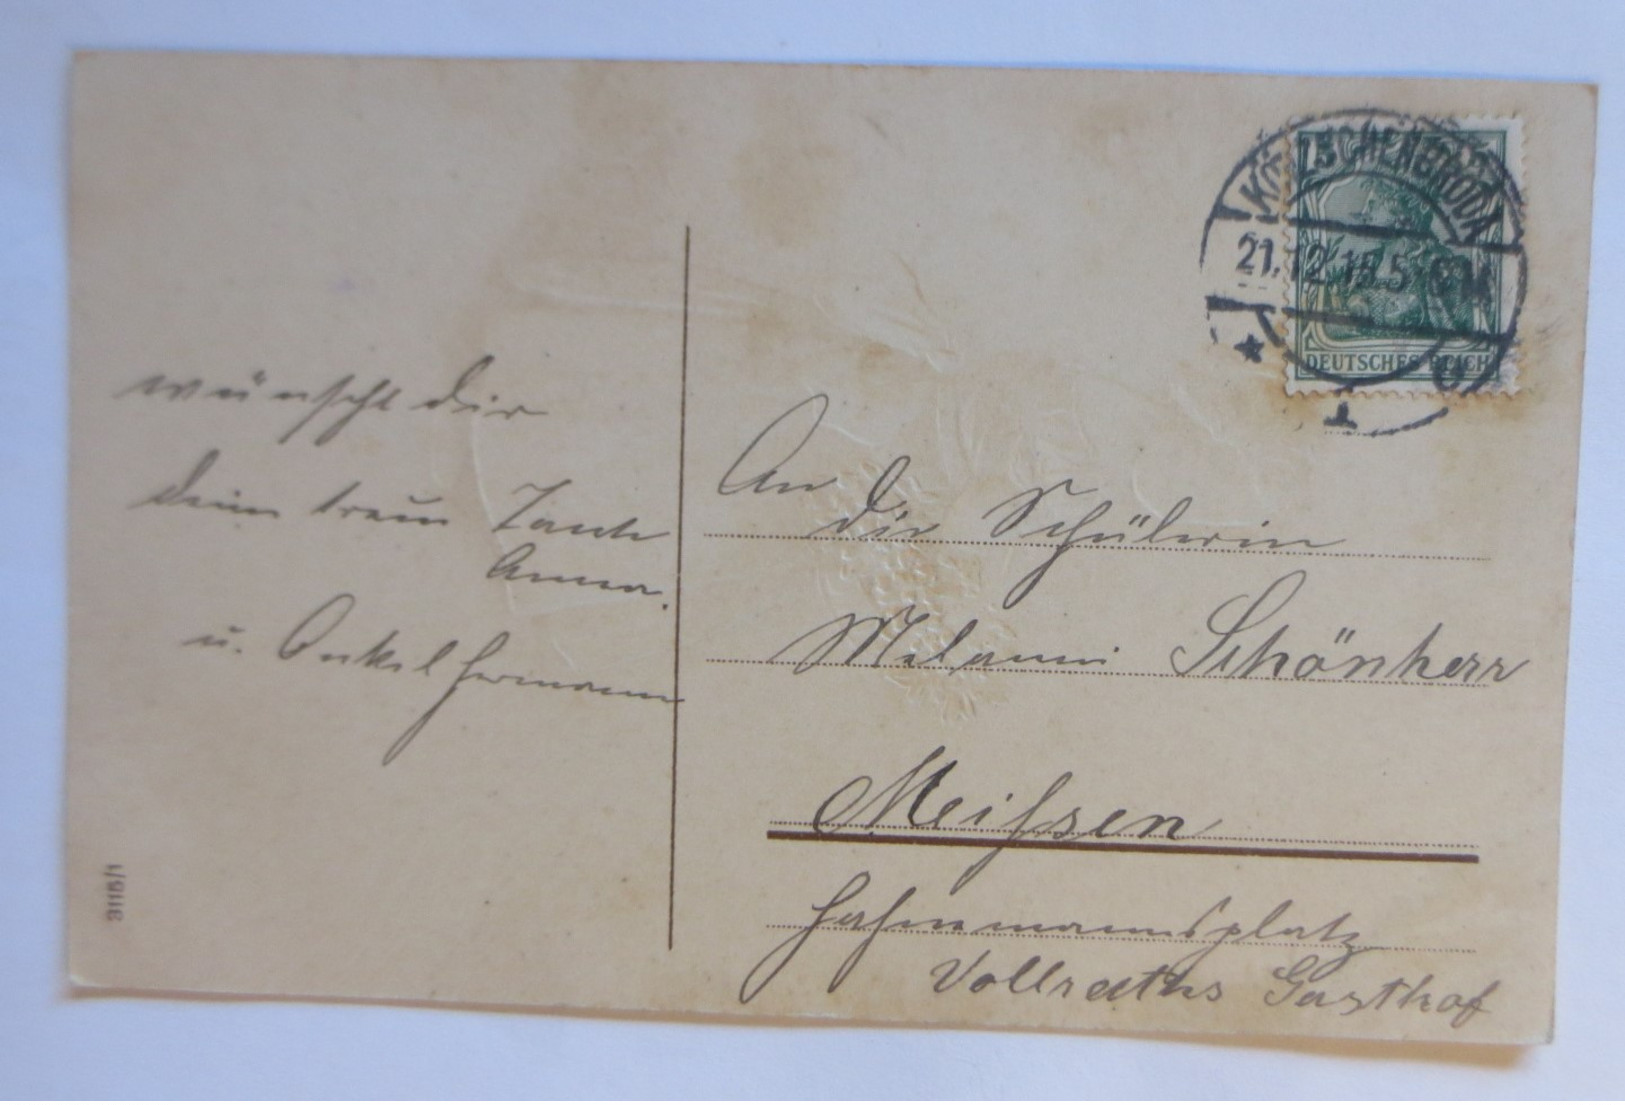 wünscht dir
deine treue Tante
Anna.
u. Onkel Hermann
3115/1
KÖTZSCHENBRODA
21.12.15.5-6N
★ 1
DEUTSCHES REICH
An
die Schülerin
Melanie Schönherr
Meißsen
Hahnemannsplatz
Vollraths Gasthof